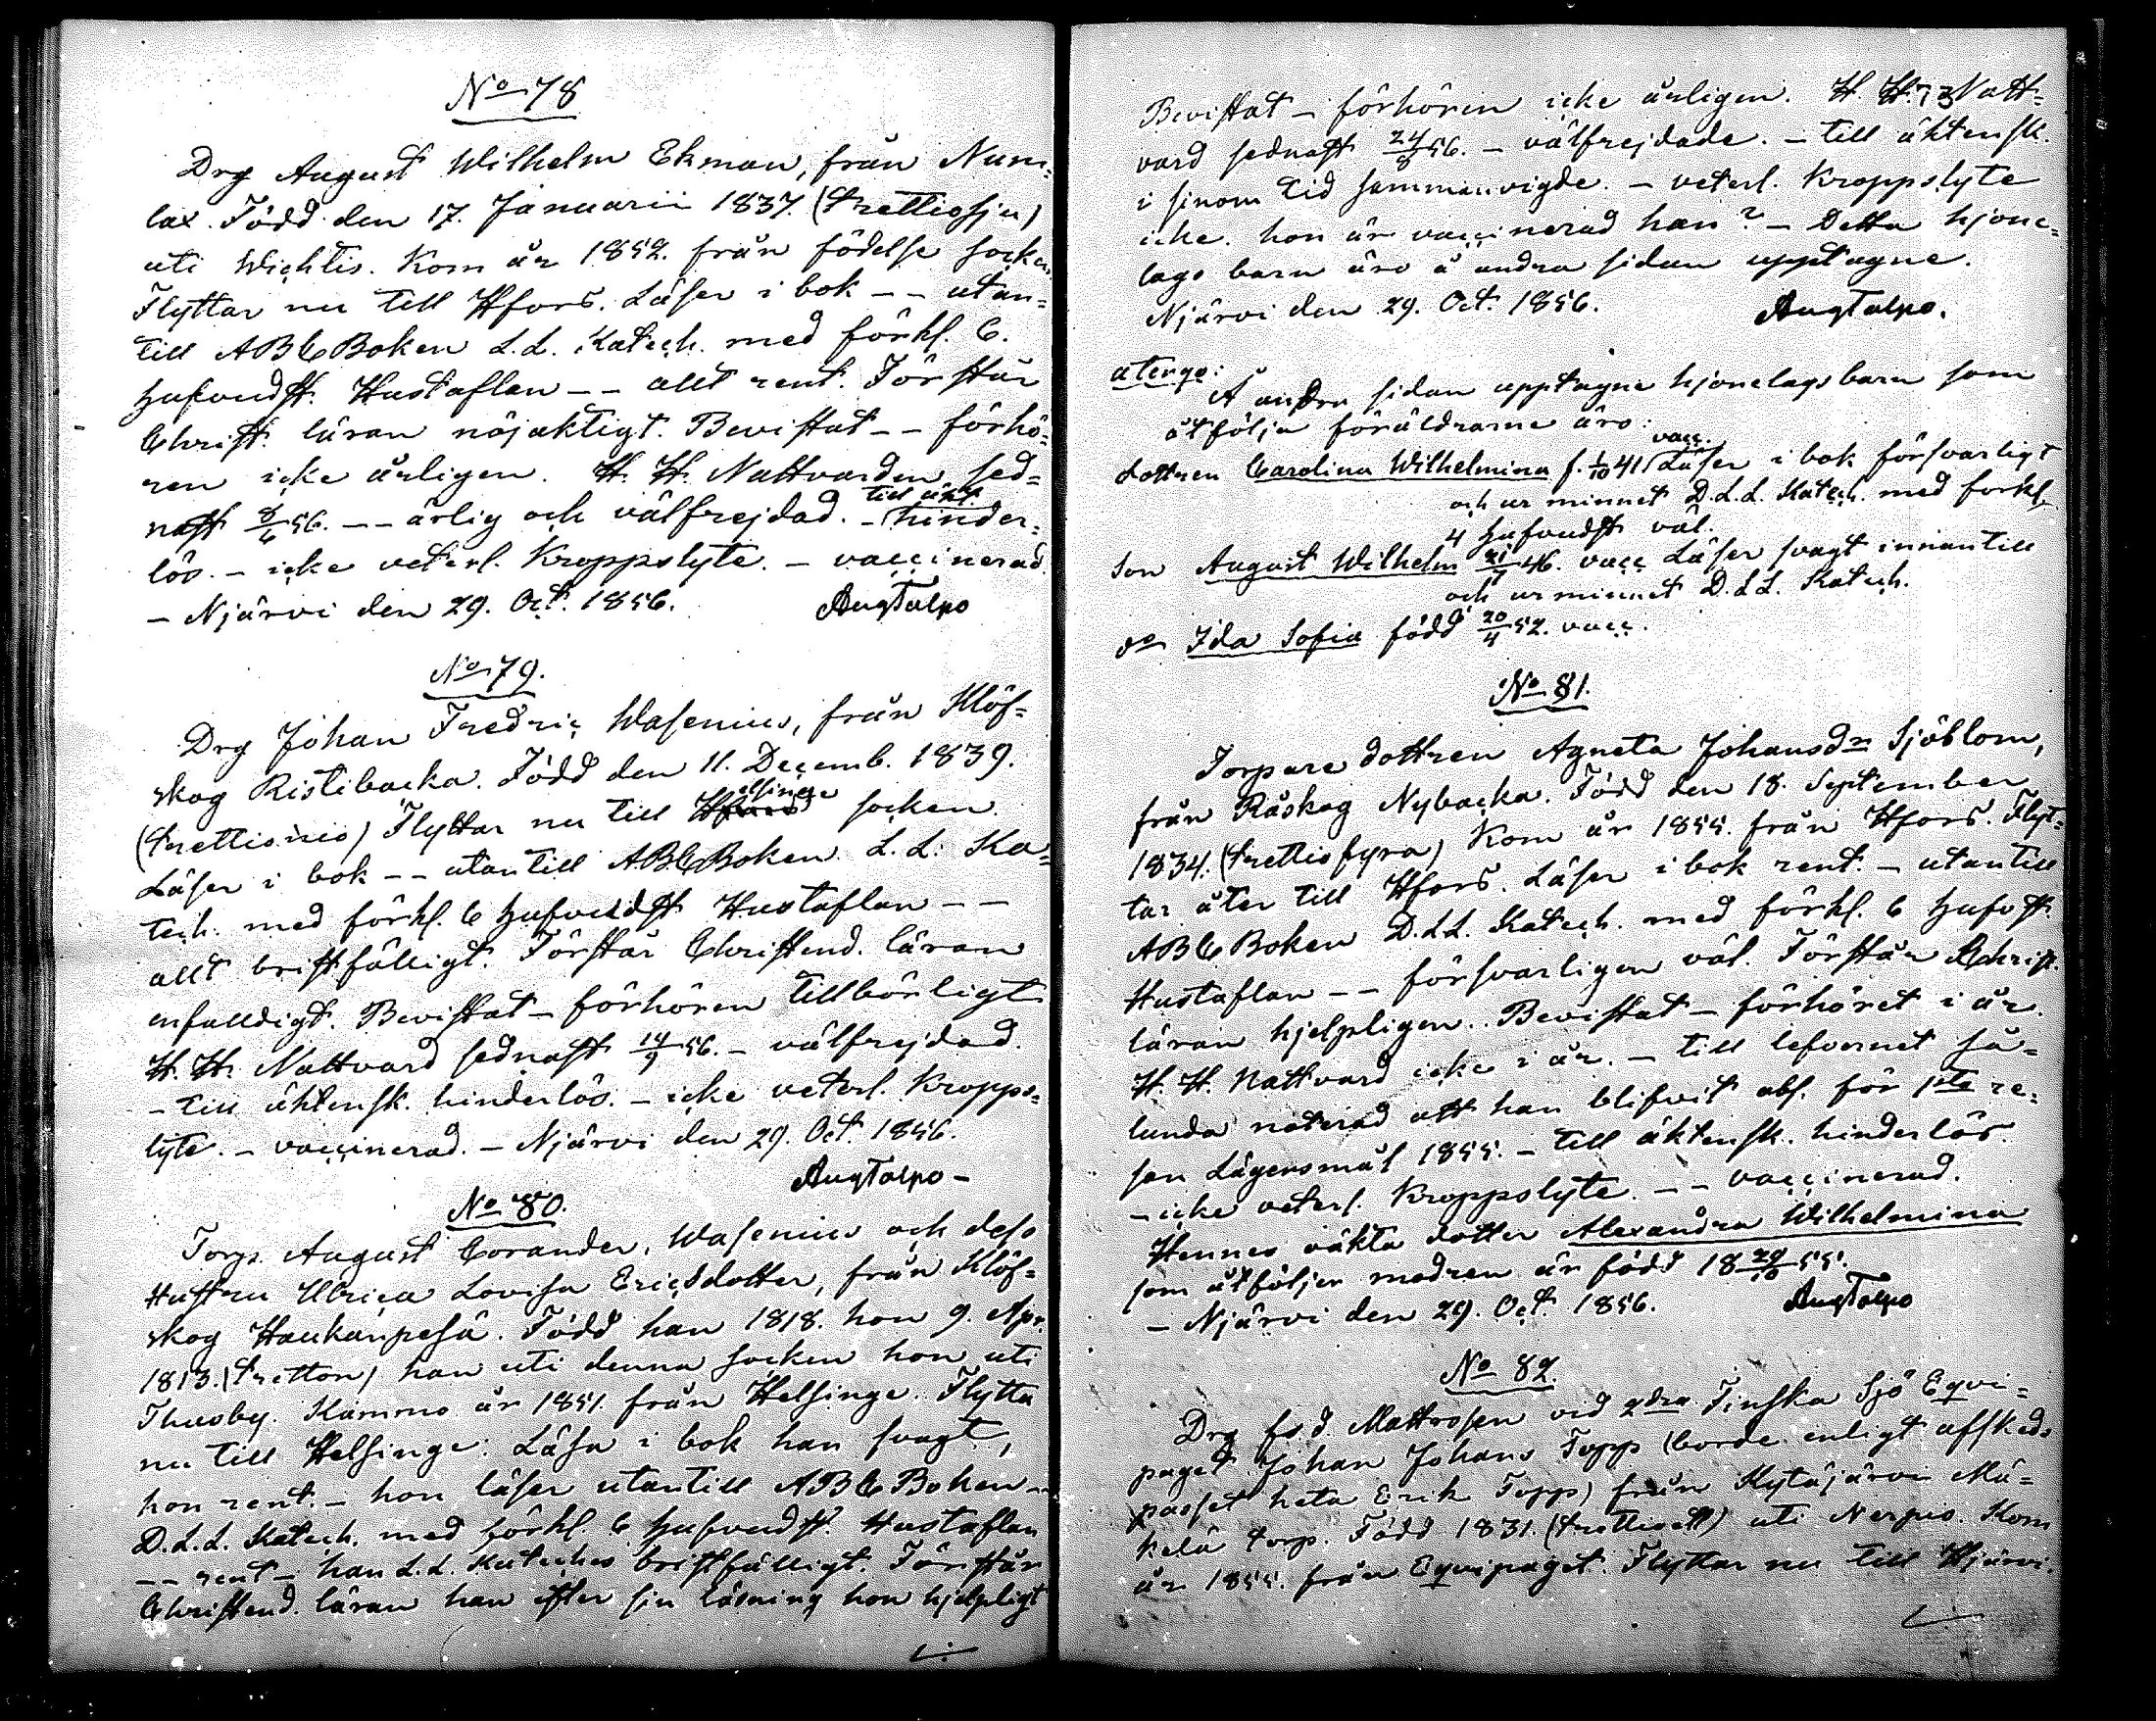 No 78
Drg August Wilhelm Ekman, från Num=
lax. Född den 17. Januarii 1837. (trettiosju)
uti Wichtis. Kom år 1852. från födelse socken
Flyttar nu till Hfors. Läser i bok -- utan=
till ABCBoken L.L. Katech. med förkl. 6.
Hufvudst. Hustaflan -- allt rent. Förstår
Christ. läran nöjaktigt. Bevistat -- förhö=
ren icke årligen. H. H. Nattvarden sed=
nast 8/6 56. -- ärlig och välfrejdad. - till äkt. hinder=
lös. - icke veterl. Kroppslyte. - vaccinerad.
- Njärvi den 29. Oct. 1856. AugTalpo
No 79.
Drg Johan Fredric Wasenius, från Klöf=
skog Ristibacka. Född den 11. Decemb. 1839.
(trettionio) Flyttar nu till Helsinge socken.
Läser i bok -- utantill ABCBoken L.L. Ka=
tech. med förkl. 6 Hufvudst Hustaflan --
allt bristfälligt. Förstår Christend. läran
enfalldigt. Bevistat - förhören tillbörligt
H. H. Nattvard sednast 14/9 56. - välfrejdad.
- till äktensk. hinderlös. - icke veterl. Kropps=
lyte. - vaccinerad. - Njärvi den 29. Oct. 1856.
AugTalpo -
No 80.
Torp. August Corander, Wasenius och dess
Hustru Ulrica Lovisa Ericsdotter, från Klöf=
skog Haukanpesä. Född han 1818. hon 9. Apr.
1813. (tretton) han uti denna socken hon uti
Thusby. Kommo år 1851. från Helsinge. Flytta
nu till Helsinge. Läsa i bok han svagt,
hon rent. - hon läser utantill ABC Boken --
D.L.L. Katech. med förkl. 6 Hufvudst. Hustaflan
-- rent - han L.L. Kateches bristfälligt. Förstår
Christend. läran han efter sin läsning hon hjelpligt
Bevistat - förhören icke årligen. H. H. Natt=
vard sednast 24/8 56. - välfrejdade. - till äktensk.
i sinom tid sammanvigde. - veterl. Kroppslyte
icke. hon är vaccinerad han? - Detta hjone=
lags barn äro å andra sidan upptagne.
Njärvi den 29. Oct. 1856. AugTalpo.
atergo:
Å andra sidan upptagne hjonelags barn som
åtfölja föräldrarne äro:
dottren Carolina Wilhelmina f. 1/10 41 vacc. Läser i bok försvarligt
och ur minnet D.L.L. Katech. med förkl.
4 Hufvudst väl.
son August Wilhelm 21/7 46. vacc Läser svagt innantill
och ur minnet D.L.L. Katech.
dr Ida Sofia född 20/4 52. vacc.
No 81.
Torpare dottren Agneta Johansdr Sjöblom,
från Råskog Nybacka. Född den 18. September
1834. (trettiofyra) Kom år 1855. från Hfors. Flyt=
tar åter till Hfors. Läser i bok rent. - utantill
ABC Boken D.L.L. Katech. med förkl. 6 Hufvst.
Hustaflan -- försvarligen väl. Förstår Christ.
läran hjelpligen. Bevistat - förhöret i år.
H. H. Nattvard icke i år. - till lefvernet så=
lunda noterad att han blifvit abs. för 1sta re=
san Lägersmål 1855. - till äktensk. hinderlös.
- icke veterl. Kroppslyte. -- vaccinerad.
Hennes oäkta dotter Alexandra Wilhelmina
som åtföljer modren är född 18 29/10 55.
- Njärvi den 29. Oct. 1856. AugTalpo
No 82.
Drg f.d. Mattrosen vid 2dra Finska Sjö Eqvi=
paget Johan Johans Topp (borde enligt afskeds
passet heta Erik Topp) från Kytäjärvi Mä=
kelä torp. Född 1831. (trettioett) uti Nerpis. Kom
år 1855. från Eqvipaget. Flyttar nu till Hjärvi.